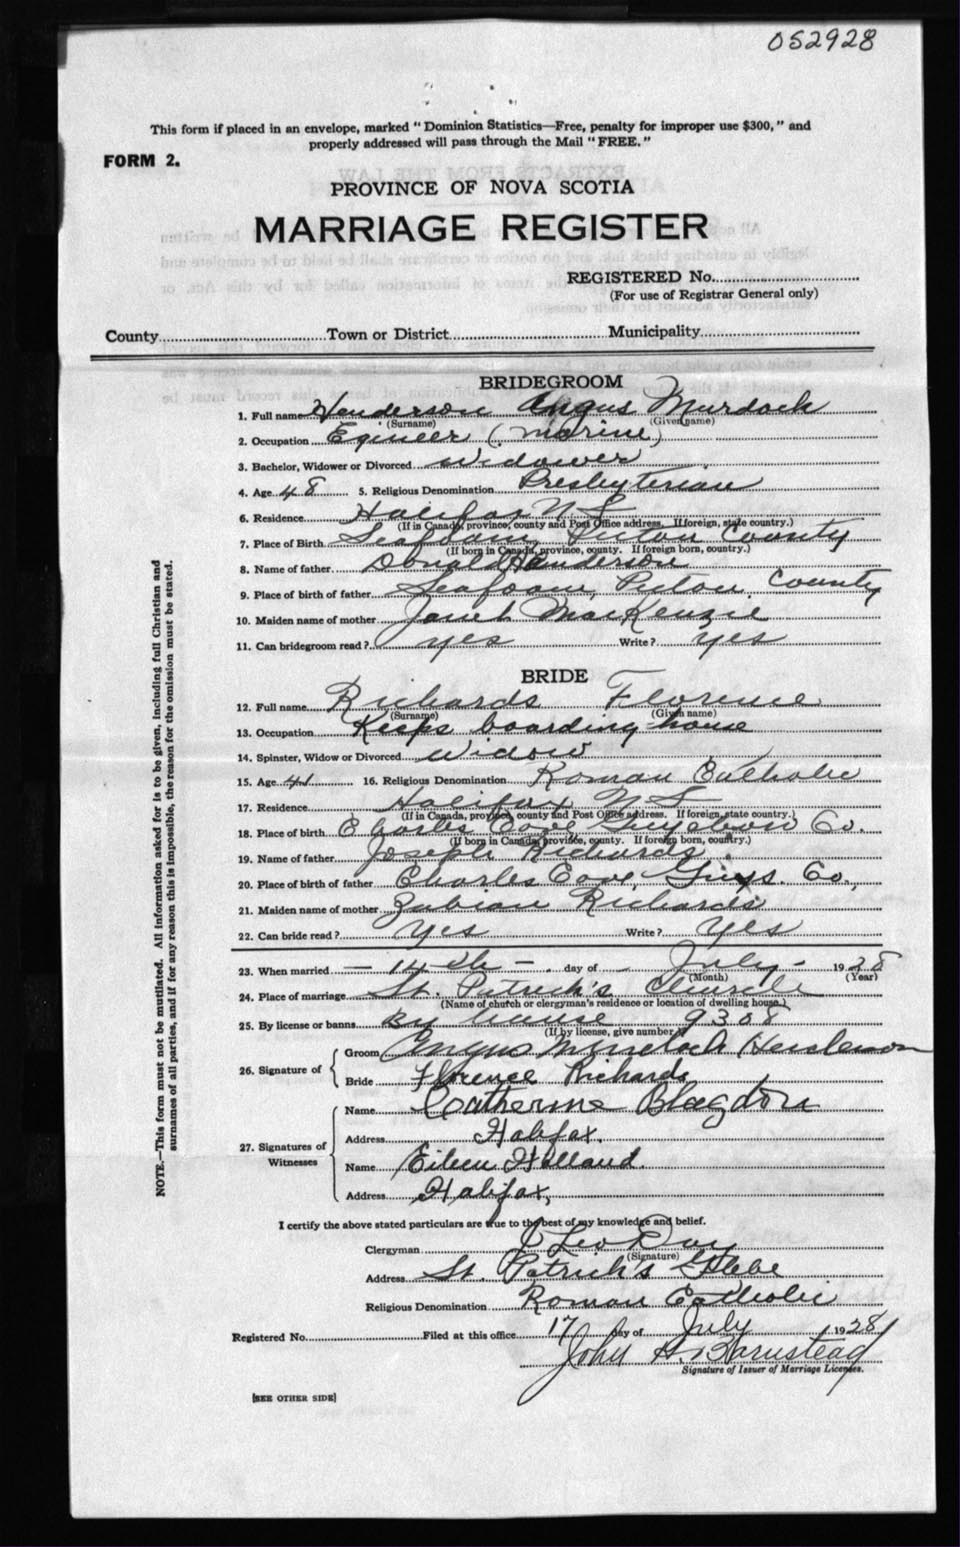 052928
This form if placed in an envelope, marked "Dominion Statistics—Free, penalty for improper use $300," and
properly addressed will pass through the Mail "FREE."
FORM 2.
PROVINCE OF NOVA SCOTIA
MARRIAGE REGISTER
REGISTERED No.
(For use of Registrar General only)
County Town or District Municipality
BRIDEGROOM
1. Full name Henderson Angus Murdoch
(Surname) (Given name)
2. Occupation Egineer (marine)
3. Bachelor, Widower or Divorced Widower
4. Age 48 5. Religious Denomination Presbyterian
6. Residence Halifax N S
(If in Canada, province, county and Post Office address. If foreign, state country.)
7. Place of Birth Seafoam, Pictou County
(If born in Canada, province, county. If foreign born, country.)
8. Name of father Donald Henderson
9. Place of birth of father Seafoam, Pictou County
10. Maiden name of mother Janet MacKenzie
11. Can bridegroom read? yes Write? yes
BRIDE
12. Full name Richards Florence
(Surname) (Given name)
13. Occupation Keeps boarding house
14. Spinster, Widow or Divorced Widow
15. Age 41 16. Religious Denomination Roman Catholic
17. Residence Halifax N S
(If in Canada, province, county and Post Office address. If foreign, state country.)
18. Place of birth Charles Cove Co.
(If born in Canada, province, county. If foreign born, country.)
19. Name of father Joseph Richards
20. Place of birth of father Charles Cove, Guys. Co.,
21. Maiden name of mother Zabian Richards
22. Can bride read? Yes Write? Yes
23. When married — 14th — day of July - 1928
(Month) (Year)
24. Place of marriage St. Patrick's Church
(Name of church or clergyman's residence or location of dwelling house.)
25. By license or banns By license 9308
(If by license, give number)
26. Signature of Groom Angus Murdoch Henderson
Bride Florence Richards
27. Signatures of Witnesses Name Catherine Blagdon
Address Halifax.
Name Eileen Holland.
Address Halifax,
I certify the above stated particulars are true to the best of my knowledge and belief.
Clergyman J Leo
(Signature)
Address St. Patrick's Glebe
Religious Denomination Roman Catholic
Registered No. Filed at this office 17 day of July 1928
John H. Barnstead
Signature of Issuer of Marriage Licenses.
[SEE OTHER SIDE]
NOTE.—This form must not be mutilated. All information asked for is to be given, including full Christian and
surnames of all parties, and if for any reason this is impossible, the reason for the omission must be stated.